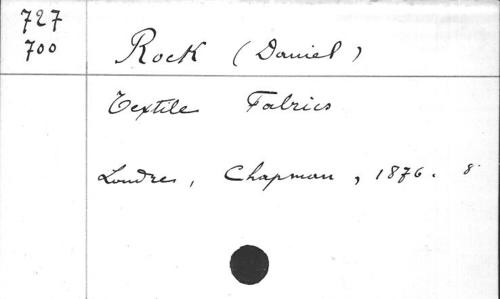 727
700
Rock (Daniel)
Textile Fabrics
Londres, Chapman, 1876. 8°